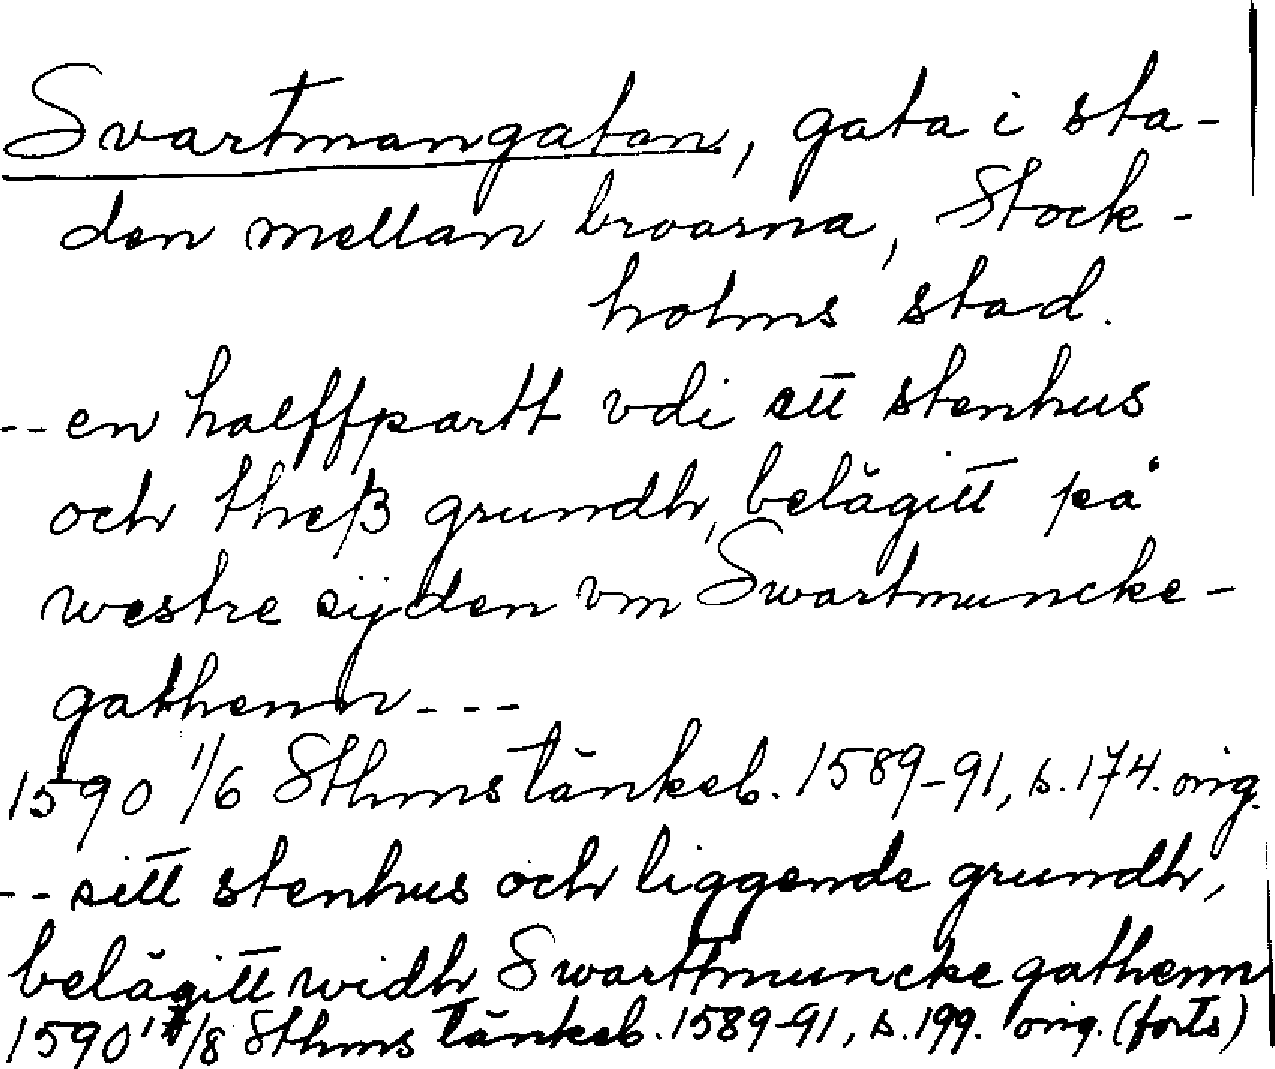 Svartmangatan, gata i sta-
den mellan broarna, Stock-
holms stad.
-- en halffpartt vdi ett stenhus
och theß grundh, belägitt på
westre sijden vm Swartmuncke-
gathenn ---
1590 1/6 Sthms tänkeb. 1589-91, s. 174. orig.
-- sitt stenhus och liggende grundh,
belägitt widh Swarttmuncke gathenn
1590 /8 Sthms tänkeb. 1589-91, s. 199. orig. (forts)